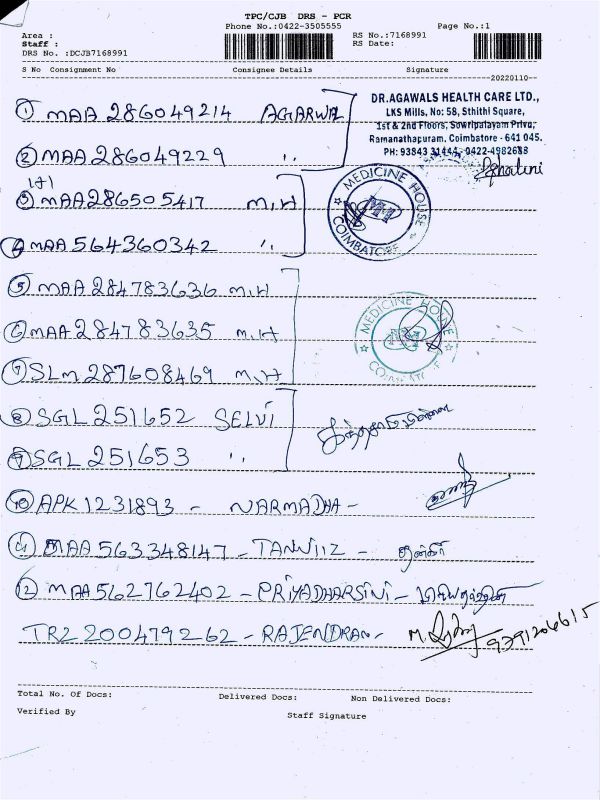 TPC/CJB DRS - PCR
Phone No.:0422-3505555 Page No.:1
Area : RS No.:7168991
Staff : RS Date:
DRS No. :DCJB7168991
S No Consignment No Consignee Details Signature
20220110
1 MAA 286049214 AGARWAL
DR.AGAWALS HEALTH CARE LTD.,
LKS Mills, No: 58, Sthithi Square,
1st & 2nd Floors, Sowripalayam Privu,
Ramanathapuram, Coimbatore - 641 045.
PH: 93843 31444, 0422-4982688
2 MAA 286049229 ,,
1+1
3 MAA 286505417 M,H
MEDICINE HOUSE
COIMBATORE
4 MAA 564360342 ,,
5 MAA 284783636 M,H
6 MAA 284783635 M,H
MEDICINE HOUSE
7 SLM 287608469 M,H
8 SGL 251652 SELVI
9 SGL 251653 ,,
10 APK 1231893 - NARMADHA -
11 MAA 563348147 -
12 MAA 562762402 - PRIYADHARSINI -
TRZ 200479262 - RAJENDRAN - 9791206615
Total No. Of Docs: Delivered Docs: Non Delivered Docs:
Verified By Staff Signature